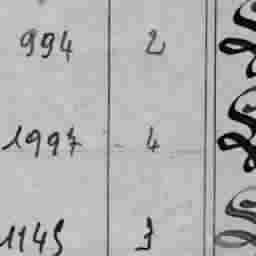 994 2
1997 4
1145 3